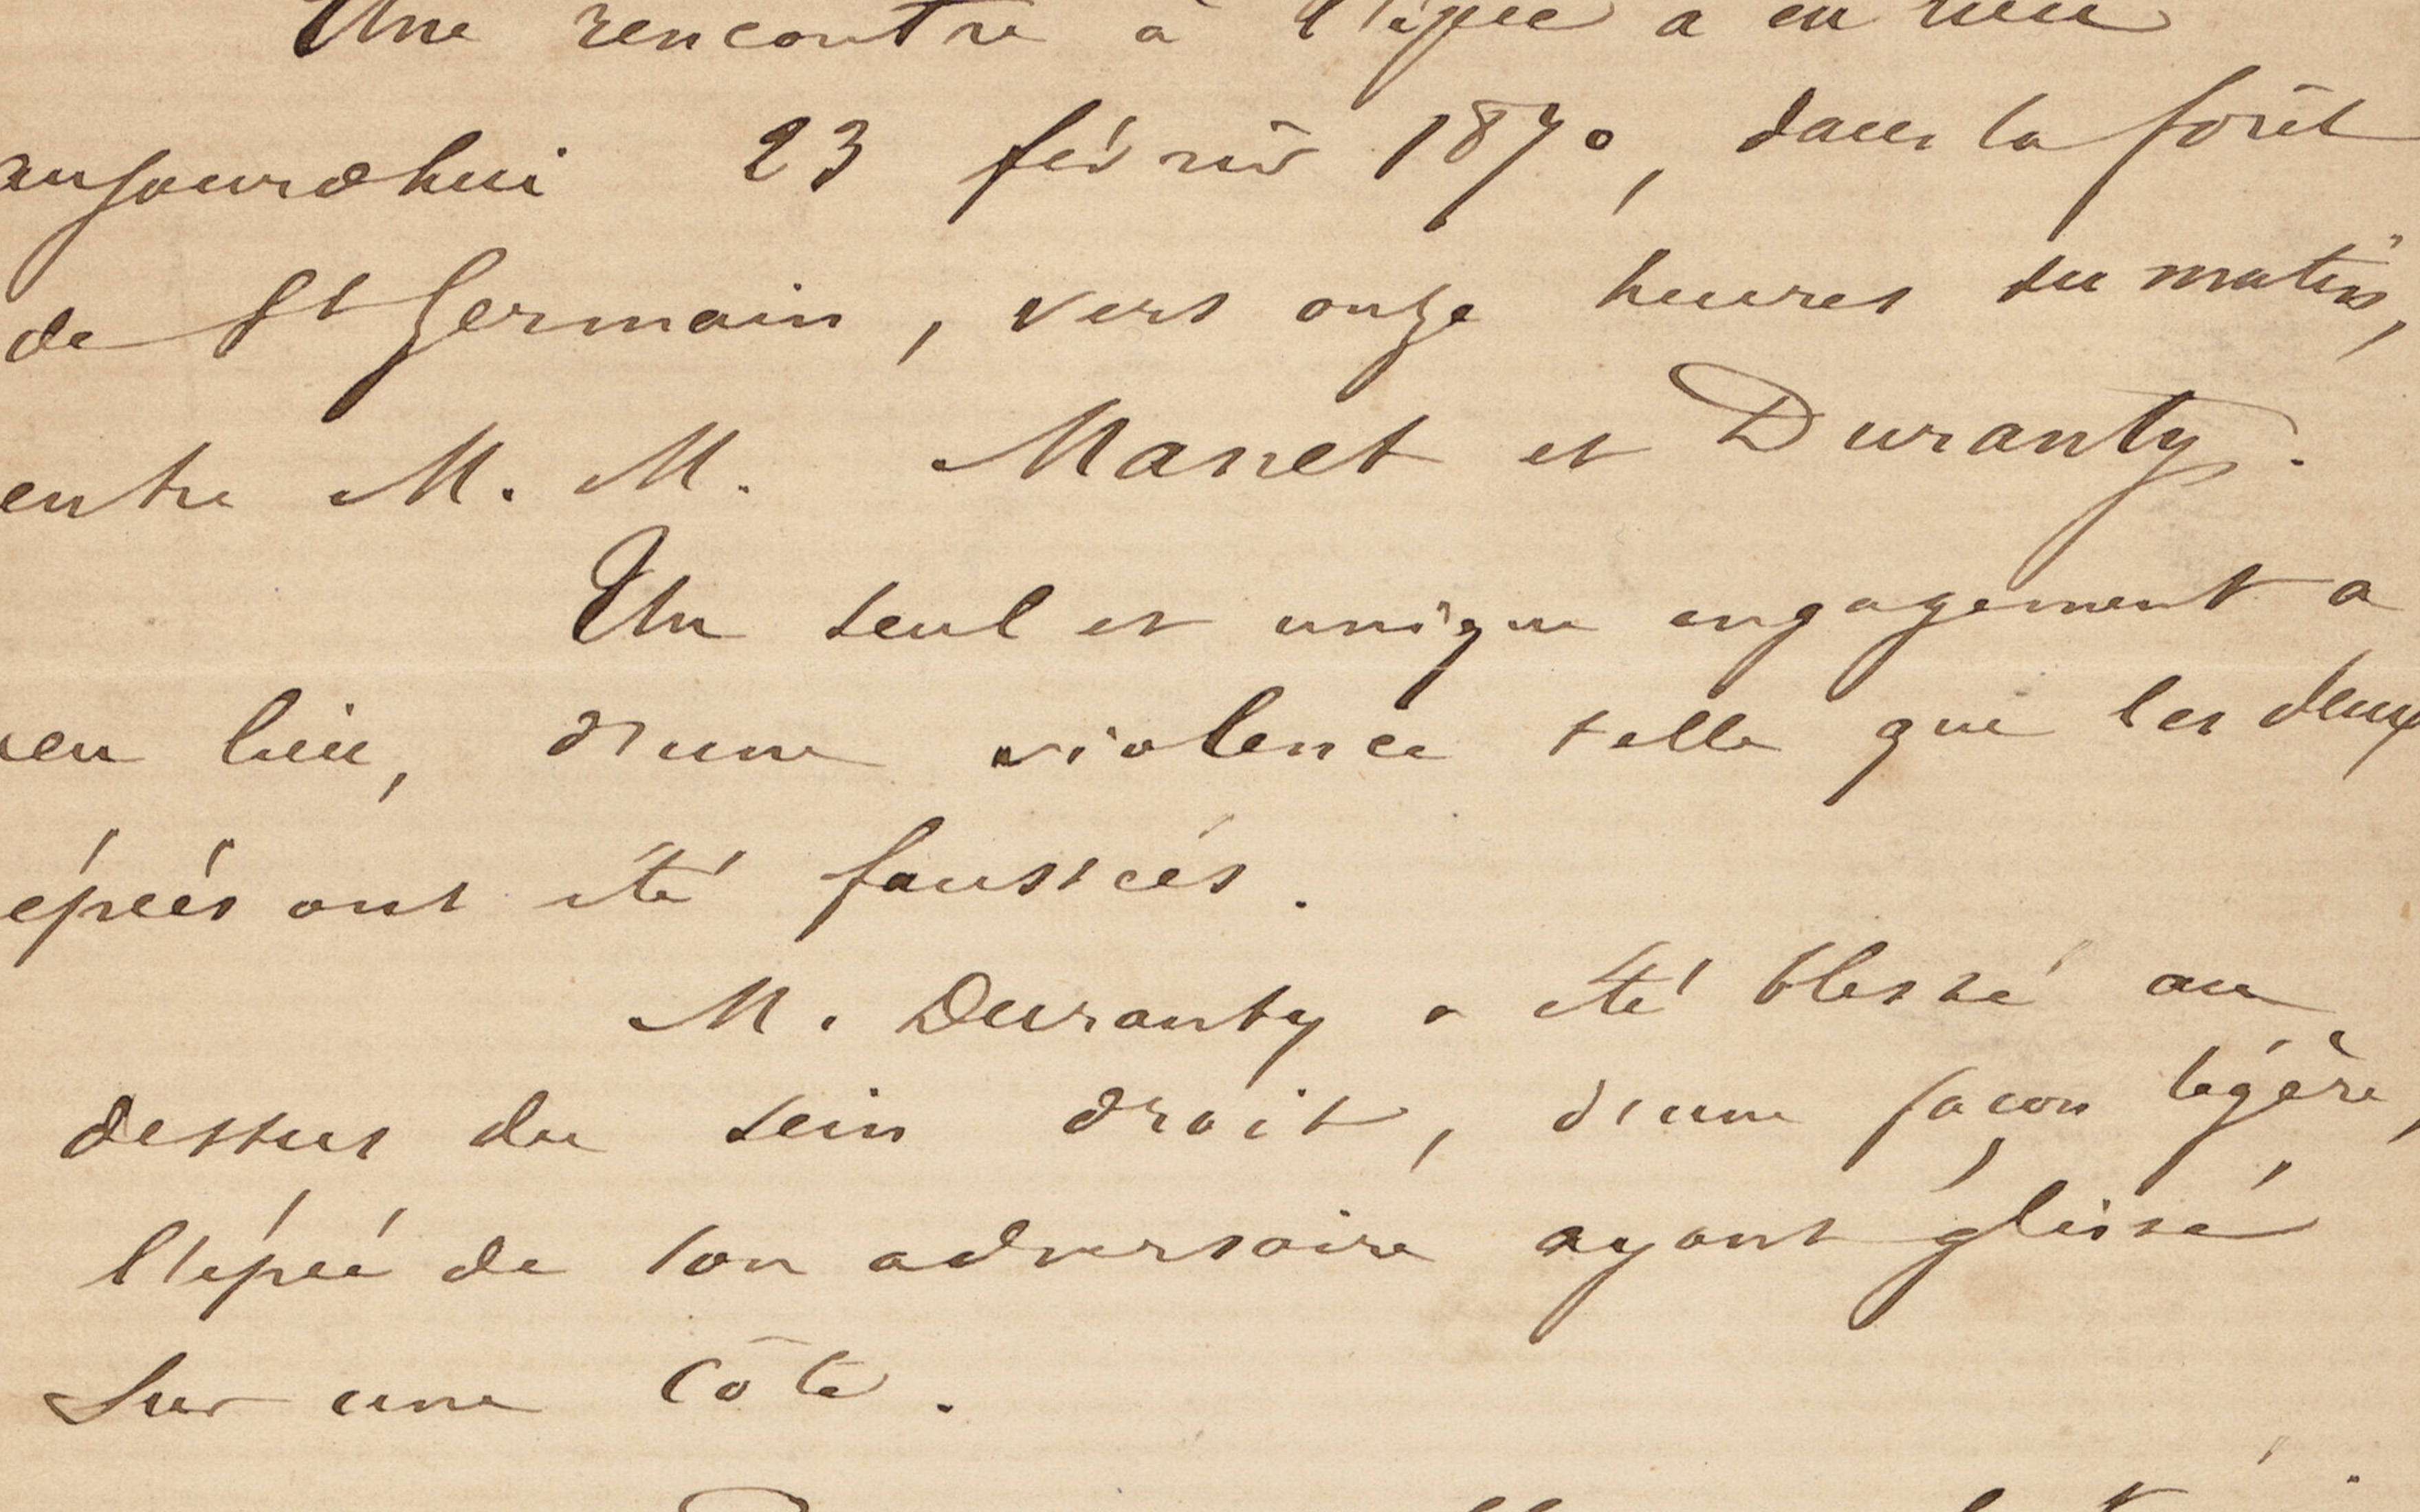 Une rencontre à l'épée a eu lieu
aujourd'hui 23 février 1870, dans la forêt
de St Germain, vers onze heures du matin,
entre M. M. Manet et Duranty.
Un seul et unique engagement a
eu lieu, d'une violence telle que les deux
épées ont été faussées.
M. Duranty a été blessé au
dessus du sein droit, d'une façon légère,
l'épée de son adversaire ayant glissé
sur une côte.